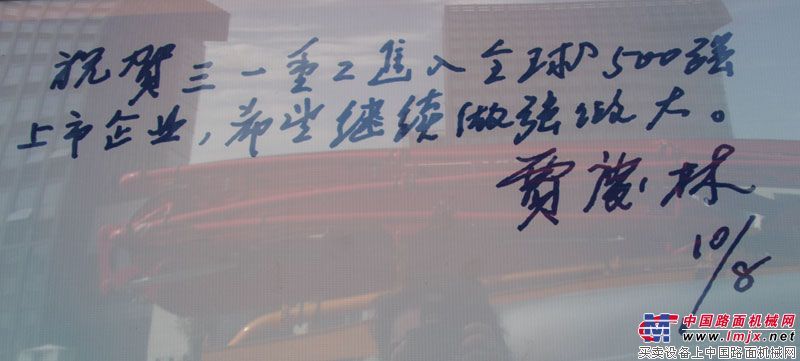 祝贺三一重工進入全球500强
上市企业，希望继续做强做大。
賈慶林
10/8
中国路面机械网
www.lmjx.net
买卖设备上中国路面机械网